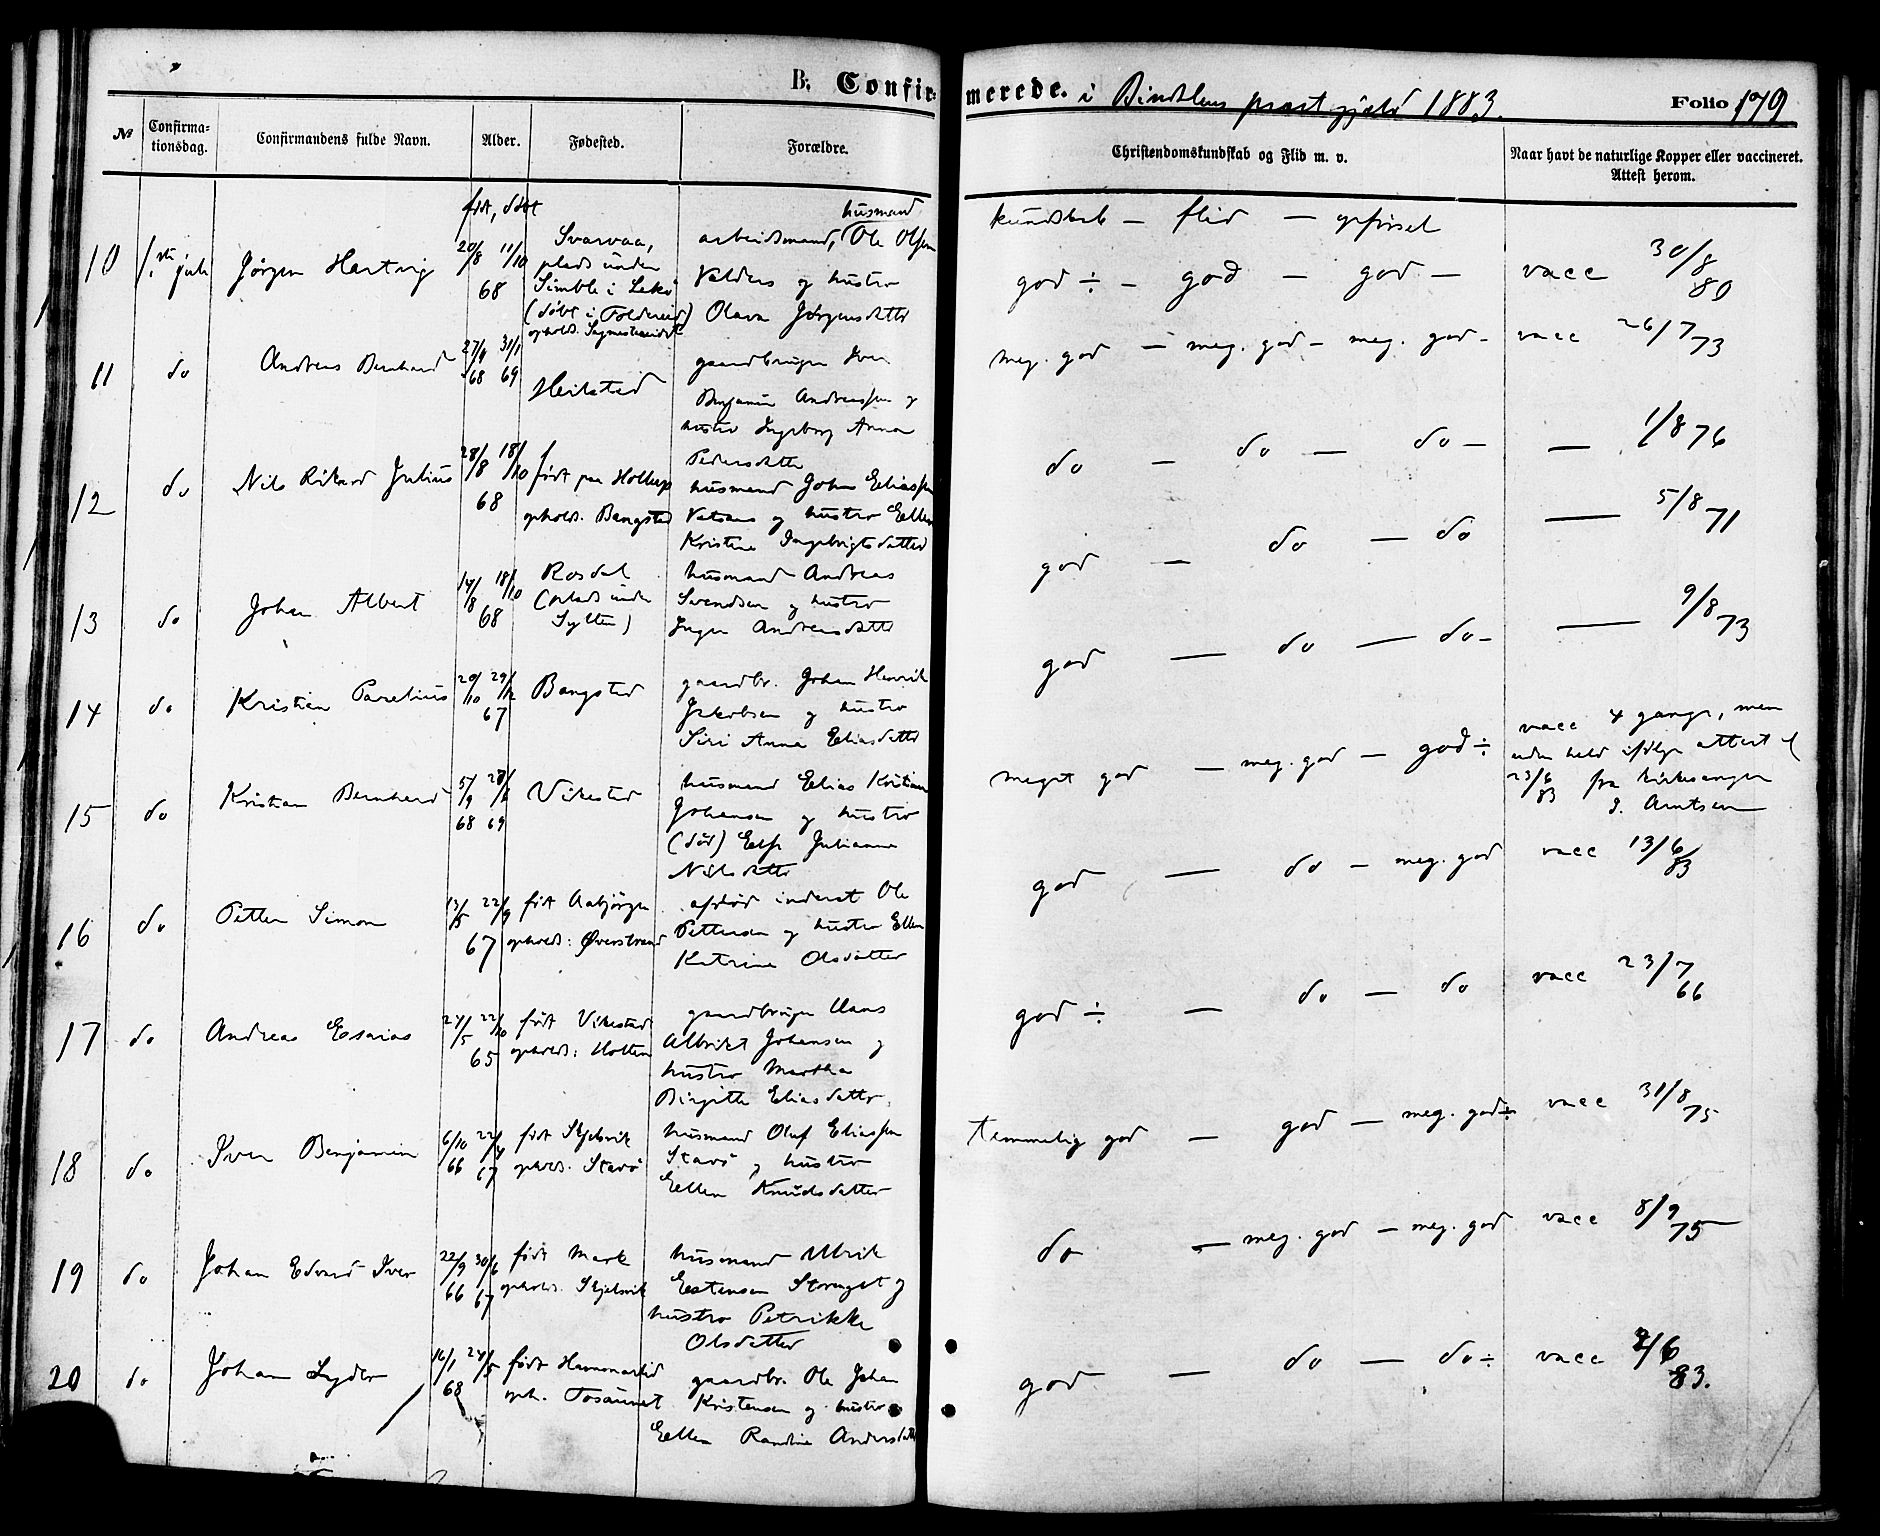 B. Confirmerede. i Bindalens præstegjeld 1883. Folio 179
№ Confirmationsdag. Confirmandens fulde Navn. Alder. Fødested. Forældre. Christendomskundskab og Flid m. v. Naar havt de naturlige Kopper eller vaccineret. Attest herom.
født, døbt
husmand
kundskab — flid — opførsel
10 1ste juli Jørgen Hartvig 20/8 11/10 68
Svarvaa,
plads under
Simble i Lekø
(døbt i Foldereid)
arbeidsmand, Ole Olsen
Valders og hustro
Olava Jørgensdatter
god ÷ — god — god — vacc 30/8 80
11 do Andreas Bernhard 27/9 31/1 68 69
Heilstad
gaardbruger Iver
Benjamin Andreassen og
hustro Ingeborg Anna
Pedersdatter
meg. god — meg. god — meg. god — vacc 26/7 73
12 do Nils Rikard Julius 28/8 18/10 68
født paa Holkup
ophold. Bangstad
husmand Johan Eliassen
Vatsaas og hustro Ellen
Kristine Ingebrigtsdatter
do — do — do — — 1/8 76
13 do Johan Albert 14/8 18/10 68
Rosdal
(plads under
Sylten)
husmand Andreas
Svendsen og hustro
Inger Andreasdatter
god — do — do — 5/8 71
14 do Kristian Parelius 20/10 29/12 67
Bangstad
gaardbr. Johan Henrik
Jakobsen og hustro
Siri Anna Eliasdatter
god — do — do — — 9/8 73
15 do Kristian Bernhard 5/9 28/6 68 69
Vikestad
husmand Elias Kristian
Johansen og hustro
(død) Else Juliane
Nilsdatter
meget god — meg. god — god ÷
vacc 4 gange, men
uden held ifølge attest af
23/6 83 fra kirkesanger
J. Arntsen
16 do Petter Simon 13/5 22/9 67
født Aabjørgen
ophold: Øverstrand
afdød inderst Ole
Pettersen og hustro Ellen
Katrine Olsdatter
god — do — meg. god vacc 13/6 83
17 do Andreas Esaias 24/5 22/10 65
født Vikestad
ophold: Holten
gaardbruger Hans
Albrikt Johansen og
hustro Martha
Birgitte Eliasdatter.
god ÷ — do — do vacc 23/7 66
18 do Iver Benjamin 6/10 22/4 66 67
født Skjelsvik
ophold. Starø
husmand Oluf Eliassen
Starø og hustro
Ellen Knudsdatter
temmelig god — god — meg. god ÷ vacc 31/8 75
19 do Johan Edvard Iver 22/9 30/6 66 67
født Mark
ophold. Skjelsvik
husmand Ulrik
Estensen og
hustro Petrikke
Olsdatter
do — meg. god — meg. god vacc 8/9 75
20 do Johan Lyder 16/1 24/5 68
født
oph. Tosaunet
gaardbr. Ole Johan
Kristensen og hustro
Ellen Randine Andersdatter
god — do — do ÷ vacc 2/6 83.